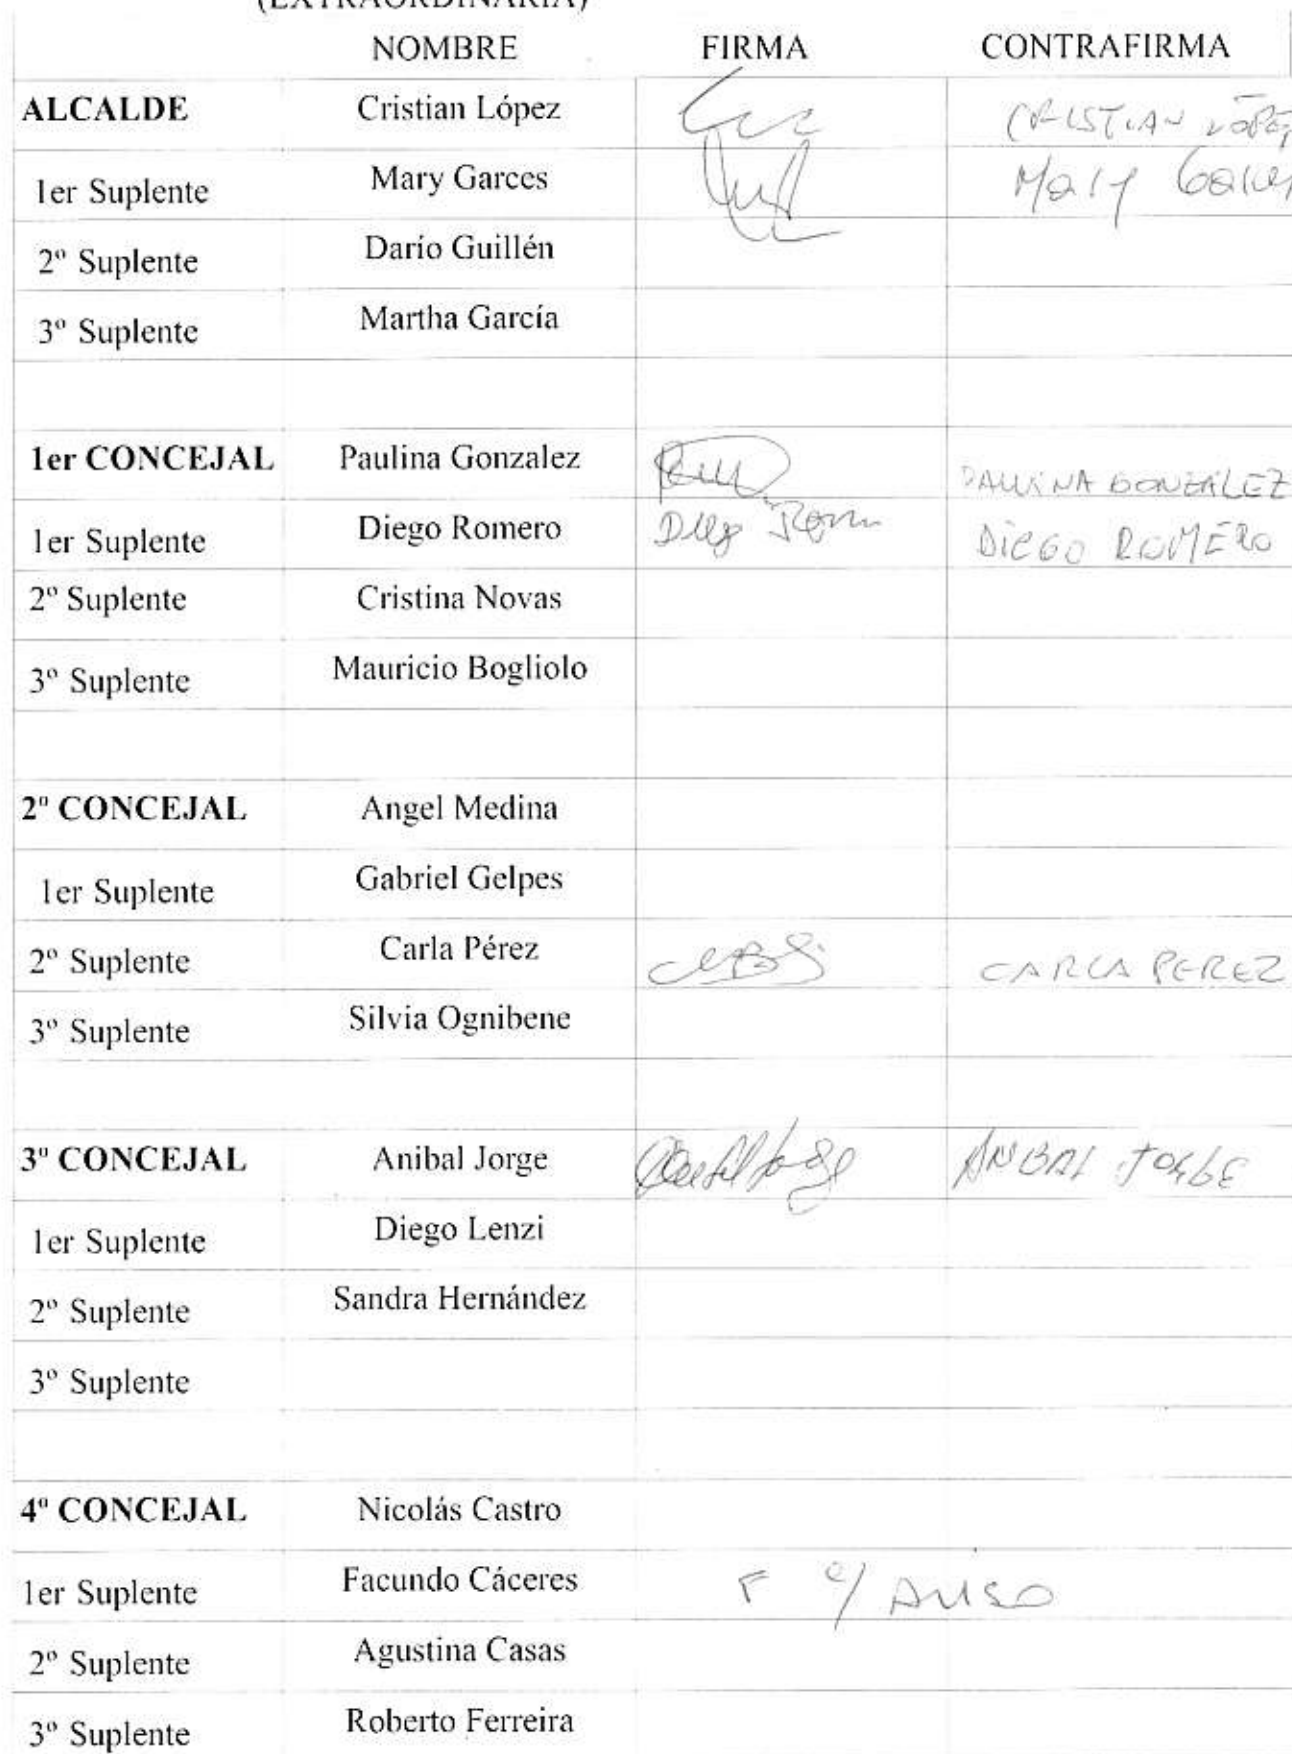 (EXTRAORDINARIA)
NOMBRE FIRMA CONTRAFIRMA
ALCALDE Cristian López CRISTIAN LÓPEZ
1er Suplente Mary Garces Mary Garces
2º Suplente Darío Guillén
3º Suplente Martha García
1er CONCEJAL Paulina Gonzalez PAULINA GONZÁLEZ
1er Suplente Diego Romero Diego Romero DIEGO ROMERO
2º Suplente Cristina Novas
3º Suplente Mauricio Bogliolo
2º CONCEJAL Angel Medina
1er Suplente Gabriel Gelpes
2º Suplente Carla Pérez CARLA PEREZ
3º Suplente Silvia Ognibene
3º CONCEJAL Anibal Jorge Anibal Jorge ANIBAL JORGE
1er Suplente Diego Lenzi
2º Suplente Sandra Hernández
3º Suplente
4º CONCEJAL Nicolás Castro
1er Suplente Facundo Cáceres F c/ AVISO
2º Suplente Agustina Casas
3º Suplente Roberto Ferreira